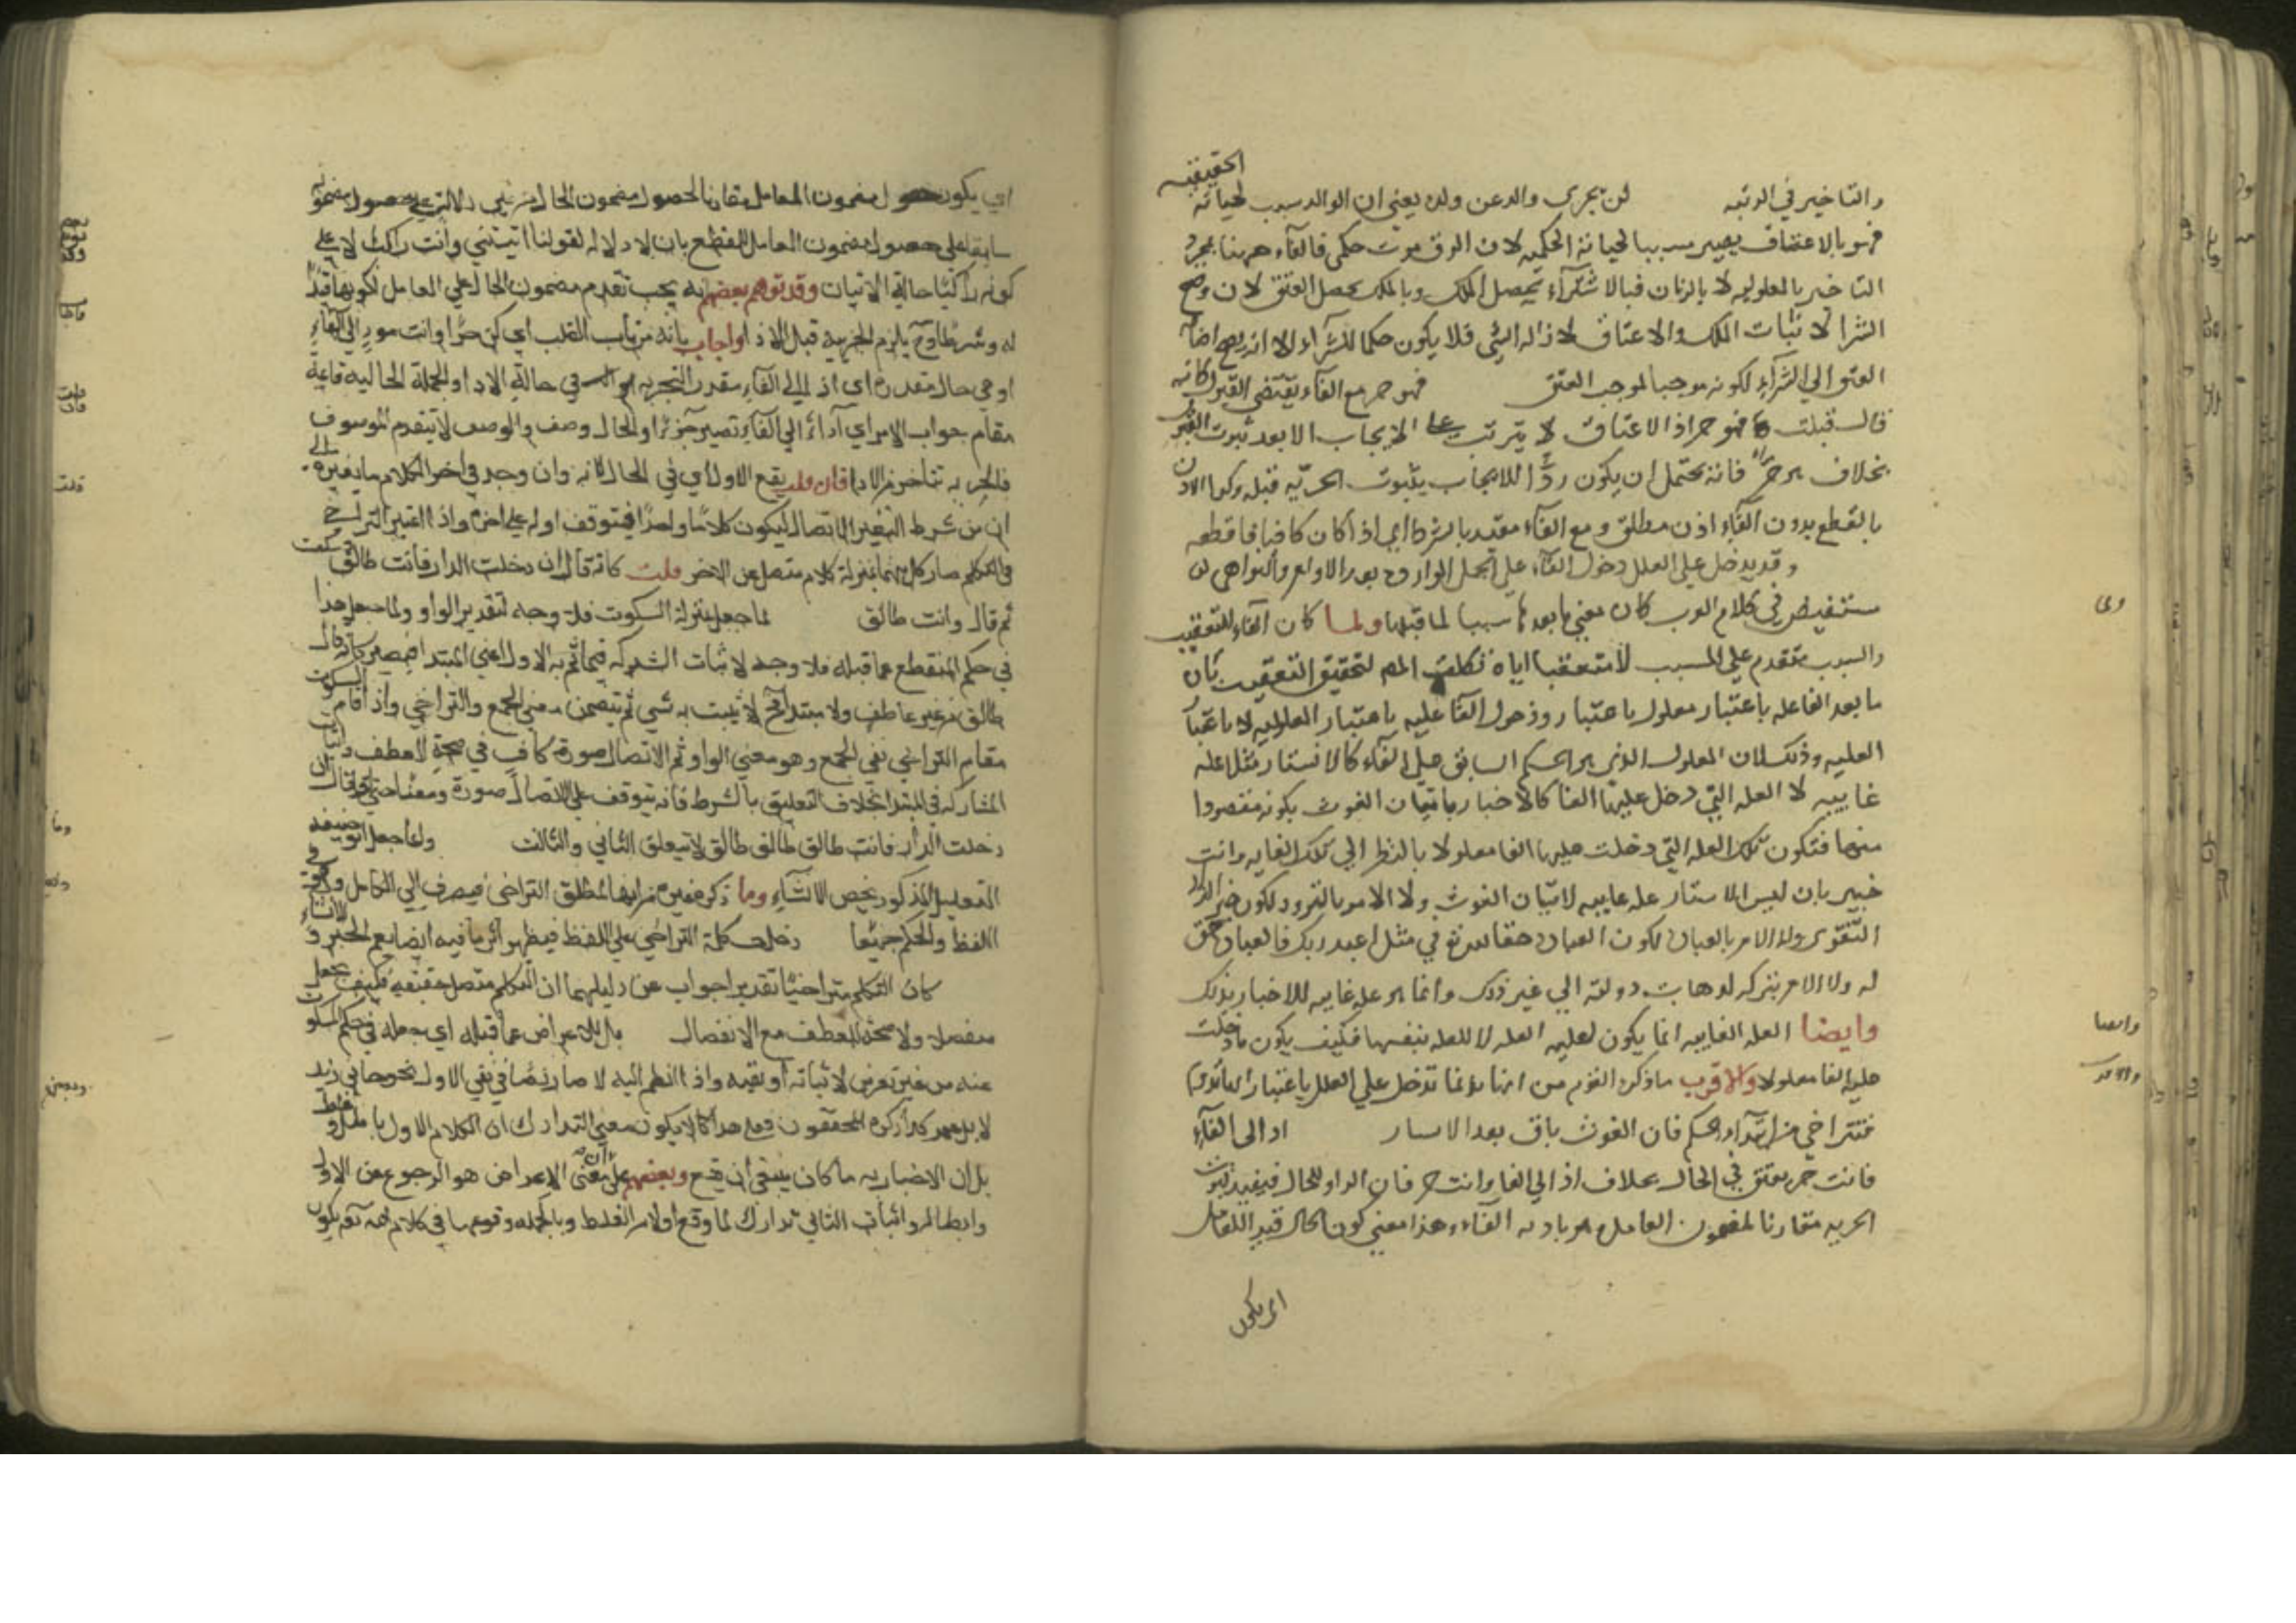 والتاخير في الرتبه لن يجزى والد عن ولده يعني ان الوالد سبب لحياته الحقيقيه
فهو بالاعتاق يصير سببا لحياته الحكميه لان الرق موت حكمي فالفاء ههنا لمجرد
التاخير بالمعلوليه لا بالزمان فبالاشتراء يحصل الملك وبالملك يحصل العتق لان وضع
الشرا لاثبات الملك والاعتاق لازالة فلا يكون حكما للشراء الا انه يصح اضافة
العتق الي الشراء لكونه موجبا لموجب العتق فهو حر مع الفاء يقتضي القبول كانه
قال قبلت فهو حر اذ الاعتاق لا يترتب على الايجاب الا بعد ثبوت القبول
بخلاف هو حر فانه يحتمل ان يكون ردا للايجاب بثبوت الحريه قبله وكما الاذن
بالقطع بدون الفاء اذن مطلق ومع الفاء مقيد بالشرط اي اذا كان كافيا فاقطعه
وقد يدخل على العلل دخول الفاء على الجمل الوارده بعد الاوامر والنواهي
مستفيض في كلام العرب كان معني ما بعدها سببا لما قبلها ولما كان الفاء للتعقيب
والسبب متقدم علي المسبب لا متعقبا اياه تكلف المص لتحقيق التعقيب بان
ما بعد الفا علة باعتبار معلول باعتبار ودخول الفا عليه باعتبار المعلوليه لا باعتبار
العليه وذلك لان المعلول الذي هو الحكم السابق على الفاء كالابشار مثلا علة
غاييه لا العله التي دخل عليها الفا كالاخبار باتيان الغوث بكونه مقصودا
منها فتكون تلك العله التي دخلت عليها الفا معلولا بالنظر الي تلك الغايه وانت
خبير بان ليس الابشار علة غاييه لاتيان الغوث ولا الامر بالتزود لكون خير الزاد
التقوى ولا الامر بالعباده لكون العباده حقا لله في مثل اعبد ربك فالعباده حق
له ولا الامر بتركه لذهاب دولته الي غير ذلك وانما هو علة غاييه للاخبار بذلك
وايضا العله الغاييه انما يكون لعليه العله لا للعله بنفسها فكيف يكون ما دخلت
عليه الفا معلولا والاقرب ما ذكره القوم من انها انما تدخل علي العلل باعتبار انها تدوم
فتتراخي عن ابتداء الحكم فان الغوث باق بعد الابشار اد الى الفاء
فانت حر يعتق في الحال بخلاف اد الي الفا وانت حر فان الواو للحال فيفيد ثبوت
الحريه مقارنا لمضمون العامل وهو تاديه الفاء وهذا معني كون الحال قيدا للعامل
اى يكون
اي يكون حصول مضمون العامل مقارنا لحصول مضمون الحال من غير دلالته علي حصول مضمونه
سابقا على حصول مضمون العامل للقطع بان لا دلالة لقولنا اتيتني وانت راكب الا على
كونه راكبا حالة الاتيان وقد توهم بعضهم انه يجب تقدم مضمون الحال علي العامل لكونها قيدا
له وشرطا وح يلزم الحريه قبل الادا واجاب بانه من باب القلب اي كن حرا وانت مود الي الفاء
او هي حال مقدرة اي اد الي الفاء مقدرا لتحريه في حالة الادا او الجملة الحاليه قايمة
مقام جواب الامر اي اد الي الفاء تصير حرا او الحال وصف والوصف لا يتقدم الموصوف
فالحريه تتاخر عن الادا فان قلت يقع الاول اي في الحال لانه وان وجد في اخر الكلام ما يغيره الا
ان من شرط التغيير الاتصال ليكون كلاما واحدا فيتوقف اوله على اخره واذا اعتبر التراخي
في التكلم صار كل منهما بمنزلة كلام منفصل عن الاخر قلت كانه قال ان دخلت الدار فانت طالق وسكت
ثم قال وانت طالق لما جعل بمنزلة السكوت فلا وجه لتقدير الواو ولما جعل هذا
في حكم المنقطع عما قبله فلا وجه لاثبات الشركه فيما تم به الاول اعني المبتدا فيصير كانه قال
طالق من غير عاطف ولا مبتدا وح لا يثبت به شي ثم يتضمن معنى الجمع والتراخي واذ اقام السكوت
مقام التراخي بقي الجمع وهو معني الواو ثم الاتصال صورة كاف في صحة العطف واثبات
المشاركه في المبتدا بخلاف التعليق بالشرط فانه يتوقف علي الاتصال صورة ومعنا حتى لو قال ان
دخلت الدار فانت طالق طالق طالق لا يتعلق الثاني والثالث وانما جعل ابو حنيفه
التعليل المذكور يخص الانشاء وما ذكره بعضهم من انها لمطلق التراخي فيصرف الي الكامل وهو في
اللفظ والحكم جميعا دخلت كلمة التراخي علي اللفظ فيظهر اثرها فيه ايضا يعم الخبر والانشاء
كان التكلم متراخيا تقديرا جواب عن دليلهما ان التكلم متصل حقيقة فكيف يجعل
منفصلا ولا صحة للعطف مع الانفصال بل للاعراض عما قبله اي جعله في حكم المسكوت
عنه من غير تعرض لاثباته او نفيه واذا انضم اليه لا صار نصا في نفي الاول نحو جاني زيد
لا بل عمرو كذا ذكره المحققون فعلى هذا لا يكون معني التدارك ان الكلام الاول باطل وغلط
بل ان الاخبار به ما كان ينبغي ان يقع وبعضهم على ان معنى الاعراض هو الرجوع عن الاول
وابطاله واثبات الثاني تدارك لما وقع اولا من الغلط وبالجمله وقوعها في كلام الله تعالى يكون